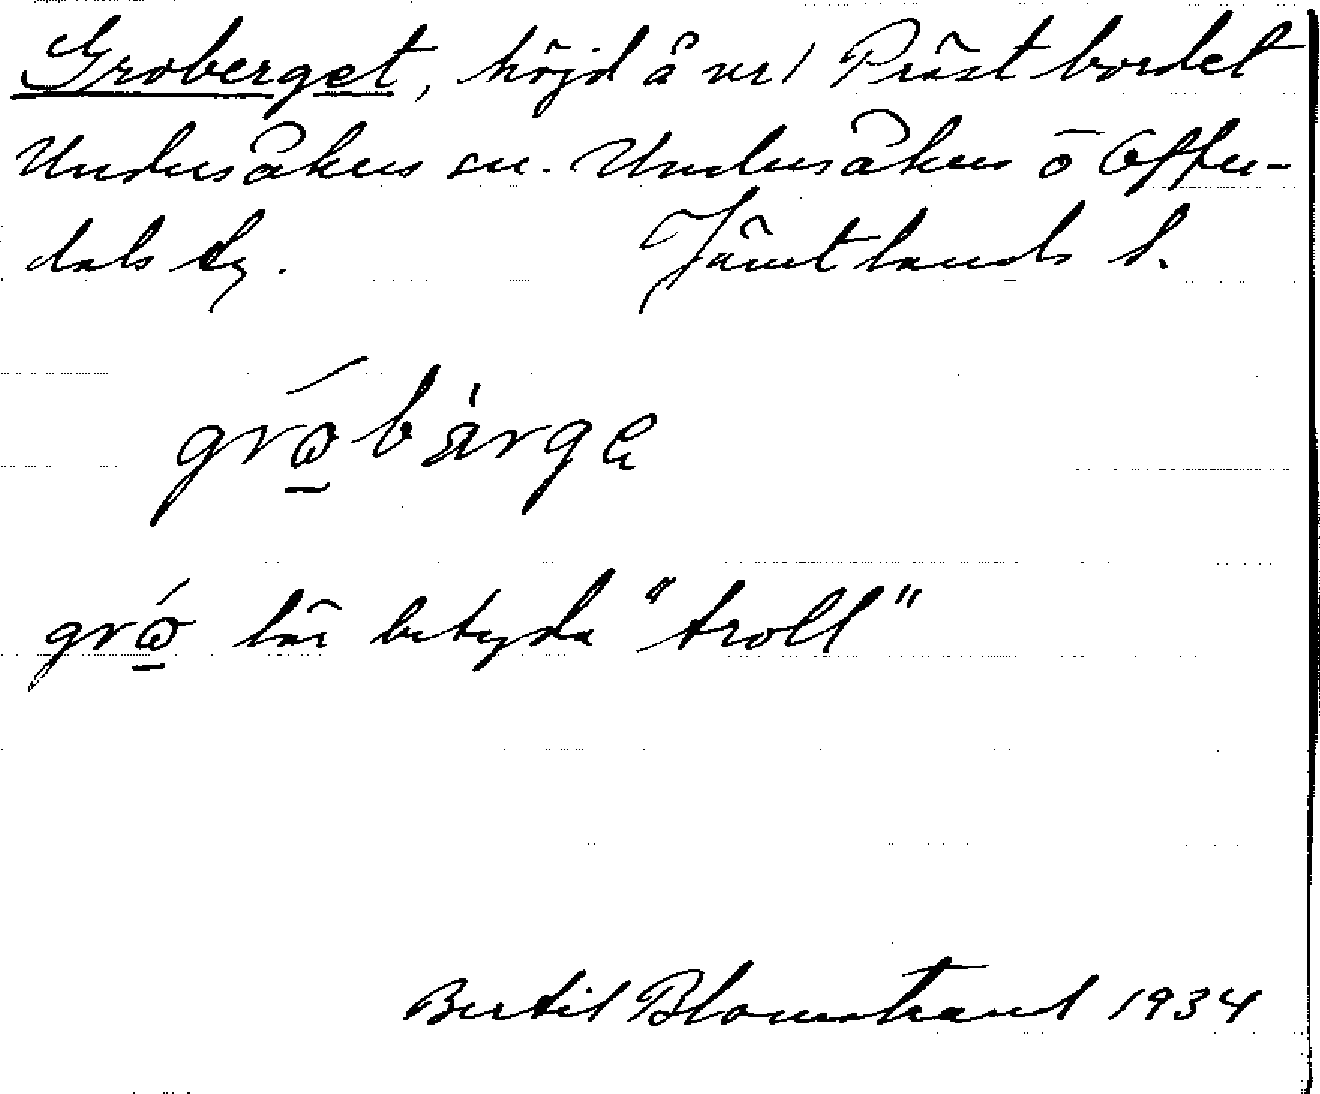 Groberget, höjd å nr 1 Prästbordet
Undersåkers sn. Undersåkers o Offer-
dals tg. Jämtlands l.
grώ̱bàrgɛ
grώ̱ lär betyda "troll"
Bertil Blomstrand 1934